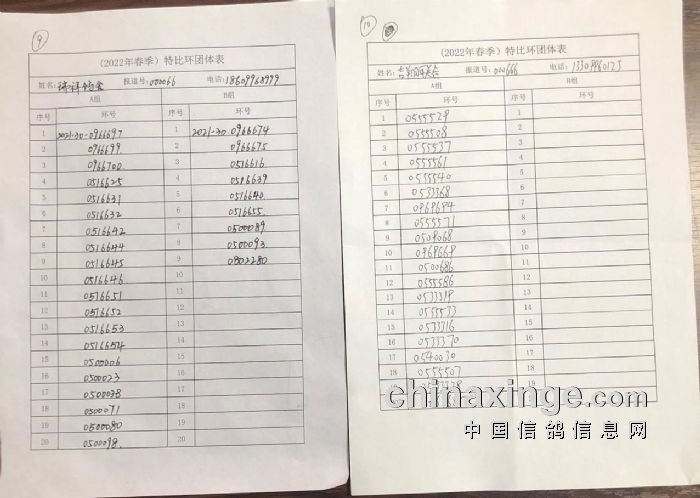 9
(2022年春季）特比环团体表
姓名: 报道号:000066 电话: 18609968999
A组 B组
序号 环号 序号 环号
1 2021-30-0966697 1 2021-30-0966674
2 0966699 2 0966675
3 0966700 3 0516616
4 0516625 4 0516639
5 0516631 5 0516640
6 0516632 6 0516655
7 0516642 7 0500089
8 0516644 8 0500093
9 0516645 9 0802280
10 0516646 10
11 0516651 11
12 0516652 12
13 0516653 13
14 0516654 14
15 0500006 15
16 0500023 16
17 0500038 17
18 0500071 18
19 0500080 19
20 0500098 20
10
(2022年春季）特比环团体表
姓名: 报道号:000666 电话: 13309960125
A组 B组
序号 环号 序号 环号
1 0555529 1
2 0555508 2
3 0555537 3
4 0555561 4
5 0555540 5
6 0533368 6
7 0968694 7
8 0555571 8
9 0508068 9
10 0968669 10
11 0500686 11
12 0555586 12
13 0533319 13
14 0555533 14
15 0533316 15
16 0533370 16
17 0540030 17
18 0555507 18
19
chinaxinge.com
中国信鸽信息网